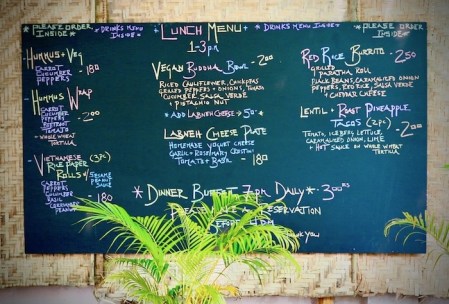 * PLEASE ORDER
INSIDE *
* DRINKS MENU
INSIDE *
LUNCH MENU
1-3pm
* DRINKS MENU INSIDE *
* PLEASE ORDER
INSIDE *
HUMMUS + VEG
CARROT
CUCUMBER
PEPPERS
- 180
HUMMUS WRAP
CARROT
CUCUMBER
PEPPERS
BEETROOT
TOMATO
+ WHOLE WHEAT
TORTILLA
- 200
VIETNAMESE
RICE PAPER (3PC)
ROLLS w/ SESAME
PEANUT
SAUCE
CARROT
PEPPERS
CUCUMBER
BASIL
CORIANDER
PEANUT
180
VEGAN BUDDHA BOWL - 200
RICED CAULIFLOWER, CHICKPEAS
GRILLED PEPPERS + ONIONS, TOMATO
CUCUMBER, SALSA VERDE
+ PISTACHIO NUT
* ADD LABNEH CHEESE + 50 *
LABNEH CHEESE PLATE
HOMEMADE YOGURT CHEESE
GARLIC + ROSEMARY CROSTINI
TOMATO + BASIL
- 180
RED RICE BURRITO - 250
GRILLED
PARATHA ROLL
BLACK BEANS, CARAMELIZED ONION
PEPPERS, RED RICE, SALSA VERDE
+ CHEDDAR CHEESE
LENTIL + ROAST PINEAPPLE
TACOS (2PC)
TOMATO, ICEBERG LETTUCE
CARAMELISED ONION, LIME
+ HOT SAUCE ON WHOLE WHEAT
TORTILLA
- 200
* DINNER BUFFET 7pm DAILY * - 300RS
PLEASE MAKE A RESERVATION
BEFORE 4PM
THANK YOU